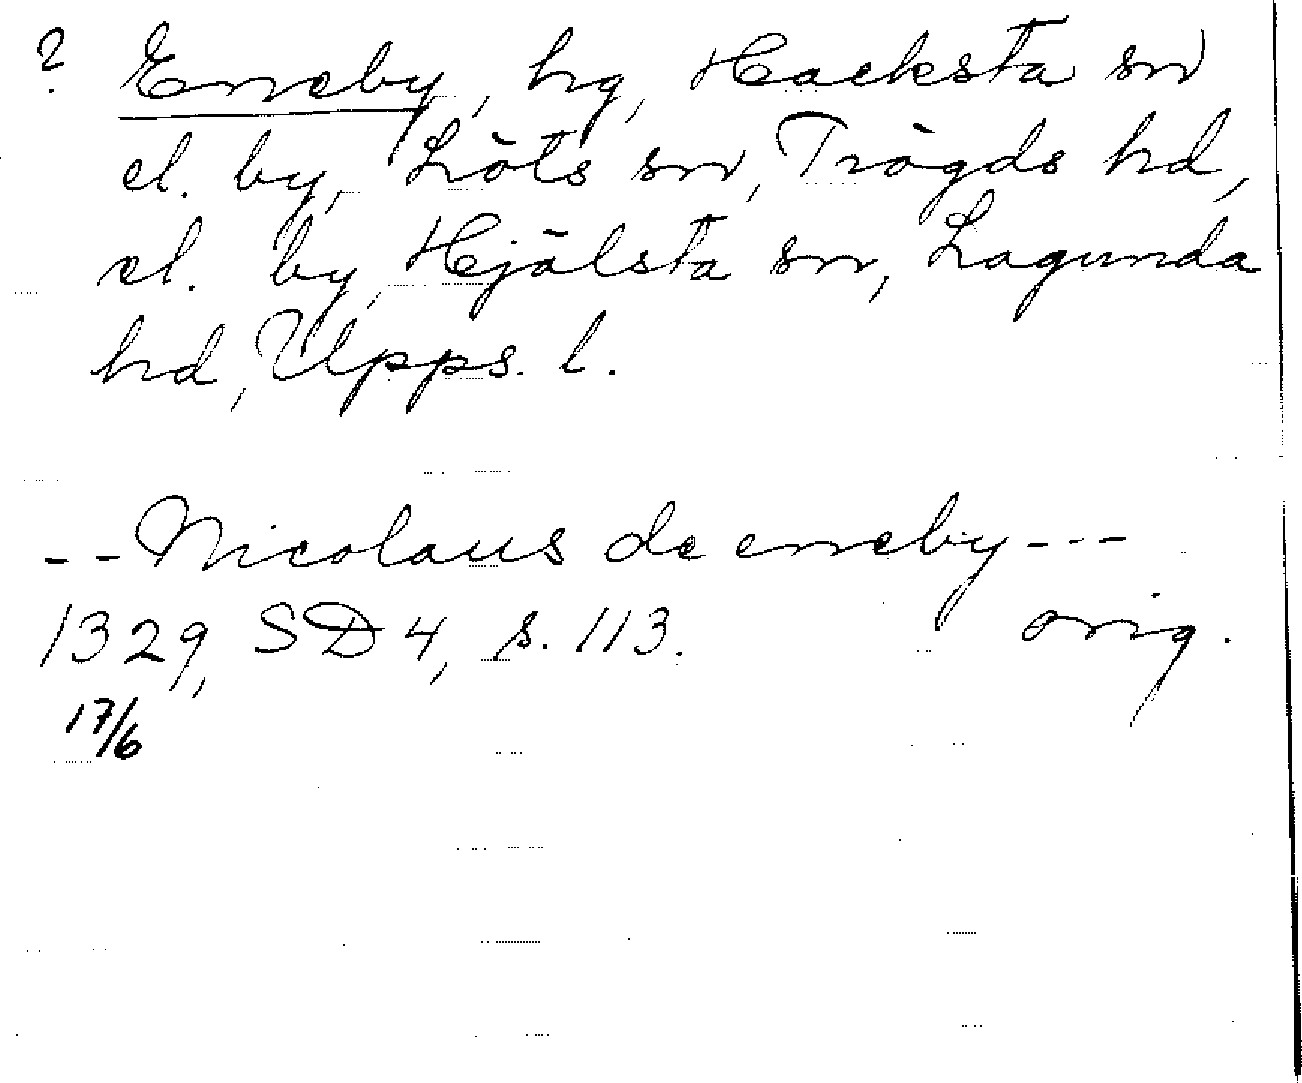 ? Eneby, hg, Hacksta sn
el. by, Löts sn, Trögds hd,
el. by, Hjälsta sn, Lagunda
hd, Upps. l.
-- Nicolaus de eneby ---
1329, SD 4, s. 113. orig.
17/6